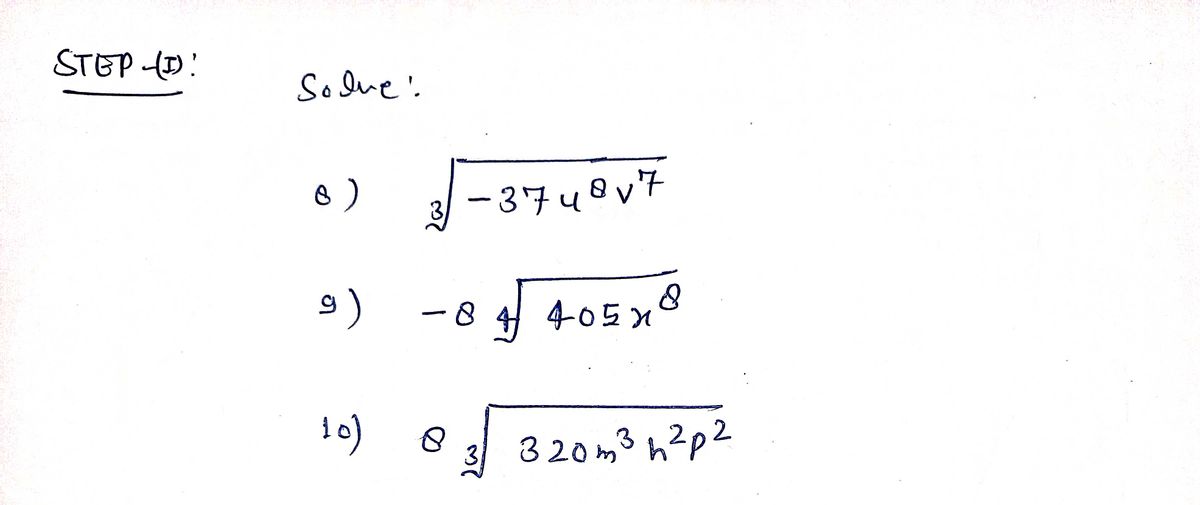 STEP-(I):
Solve:
8) ∛(-37u⁸v⁷)
9) -8 ∜(405x⁸)
10) 8 ∛(320m³n²p²)